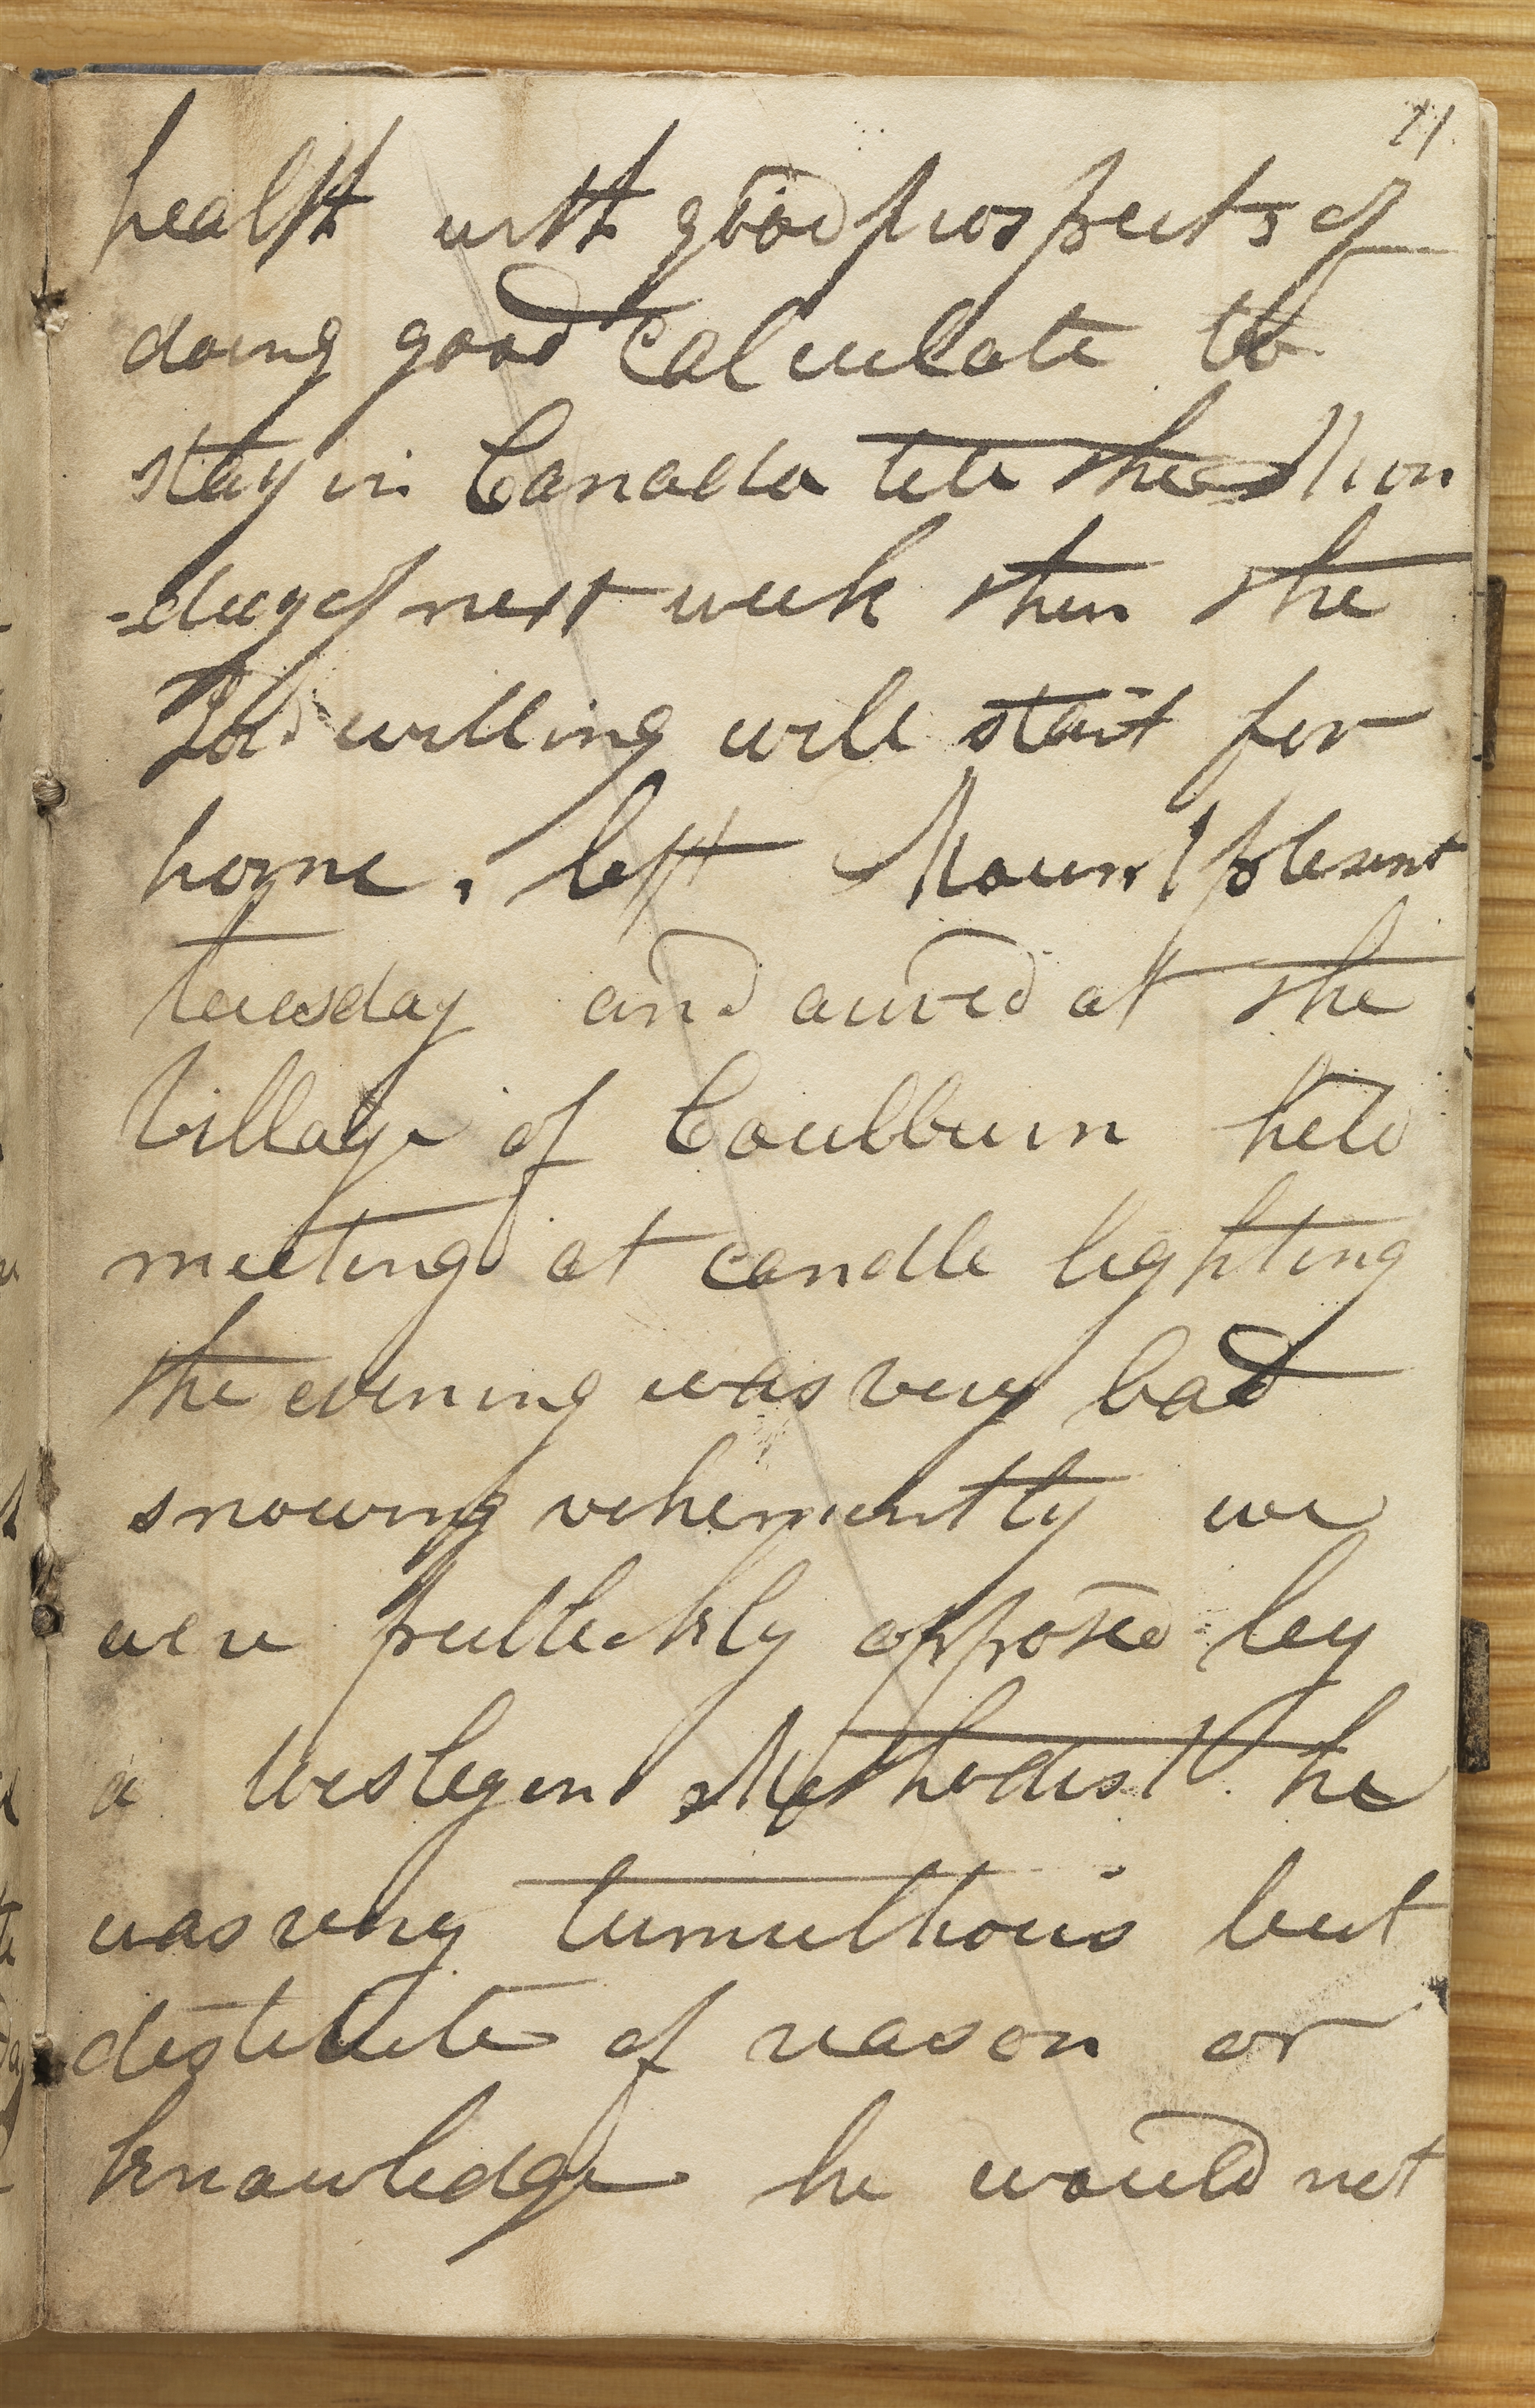 71.
health with good prospects of
doing good Calculate to
stay in Canada till the Mon
-day of next week then the
Lord willing will start for
home, left Mount plesent
tuesday and arived at the
village of Coulburn held
meeting at candle lighting
the evening was very bad
snowing vehemently we
were publickly opposed by
a Wesleyen Methodist he
was very tumulthous but
destitute of reason or
knowledge he would not